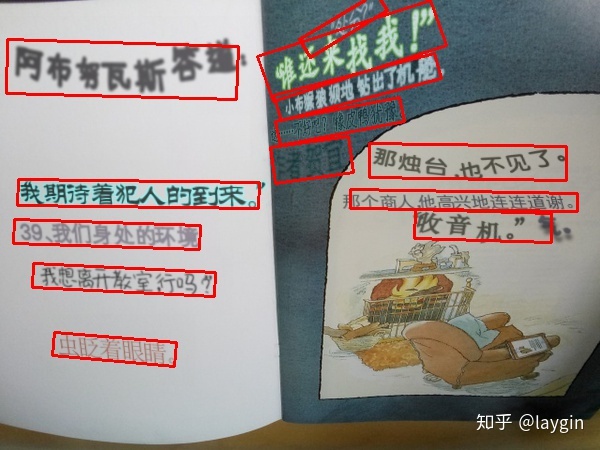 阿布努瓦斯答道：
我期待着犯人的到来。”
39、我们身处的环境
我想离开教室行吗？
虫眨着眼睛。
谁还来找我！”
小布服装极地钻出了机舱
那烛台，也不见了。
那个商人，他高兴地连连道谢。
收音机。”
知乎 @laygin